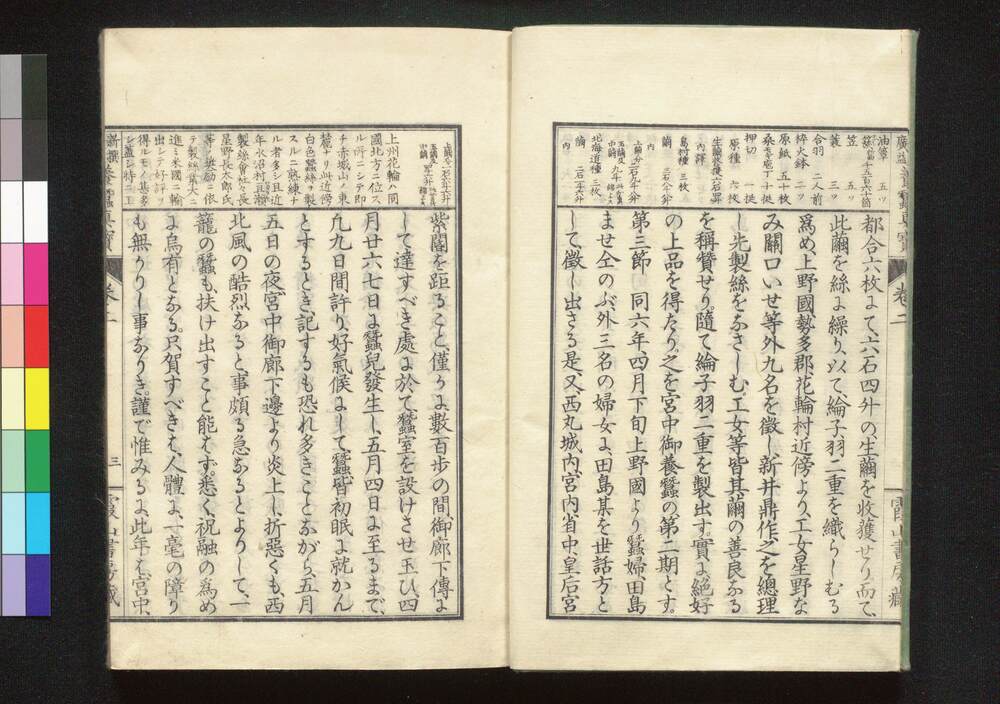 都合六枚にて、六石四升の生繭を收獲せり而て、
此繭を絲に繰り、以て綸子羽二重を織らしむる
爲め、上野國勢多郡花輪村近傍より、工女星野な
み關口いせ等外九名を徴し、新井鼎作之を總理
し先製絲をなさしむ。工女等皆其繭の善良なる
を稱賛せり隨て綸子羽二重を製出す。實に絶好
の上品を得たり、之を宮中御養蠶の第二期とす。
第三節 同六年四月下旬上野國より蠶婦、田島
ませ仝のぶ外三名の婦女に、田島某を世話方と
して、徴し出さる是、又、西丸城內、宮內、省中、皇后宮
油單 五ツ
笠 五ツ
蓑 三ツ
合羽 二人前
椊火鉢 二ツ
原紙 五十枚
桑切庖丁 十挺
押切 一挺
原種 六枚
生繭收獲六石四升
內譯
島村種 三枚
繭 三石八升
內
北海道種 三枚
繭 二石九斗六升
內
紫閣を距ること、僅かに數百歩の間、御廊下傳に
して達すべき處に於て蠶室を設けさせ玉ひ、四
月廿六七日に蠶兒發生し、五月四日に至るまで、
凡九日間許り、好氣候にして、蠶皆初眠に就かん
とするとき記するも恐れ多きことながら、五月
五日の夜宮中御廊下邊より炎上し、折惡くも、西
北風の酷烈なると、事頗る急なるとよりして、一
籠の蠶も扶け出すこと能はず。悉く祝融の爲め
に烏有となる。只賀すべきは、人體に、一毫の障り
も無かりし事なりき。謹で惟みるに、此年は、宮中、
上州花輪ハ同
國北方ニ位ス
ル所ニシテ即
チ赤城山ノ東
麓ナリ此近傍
白色蠶絲ヲ製
スルニ熟練ナ
ル者多シ且近
年水沼村眞瀞
製絲會社々長
星野長太郎氏
等ノ奬勵ニ依
テ製絲益大ニ
進ミ米國ニ輸
出シテ好評ヲ
得ルモノ甚多
シ蓋シ特ニ工
卷二
三
霞山書房藏
卷二
霞山書房藏